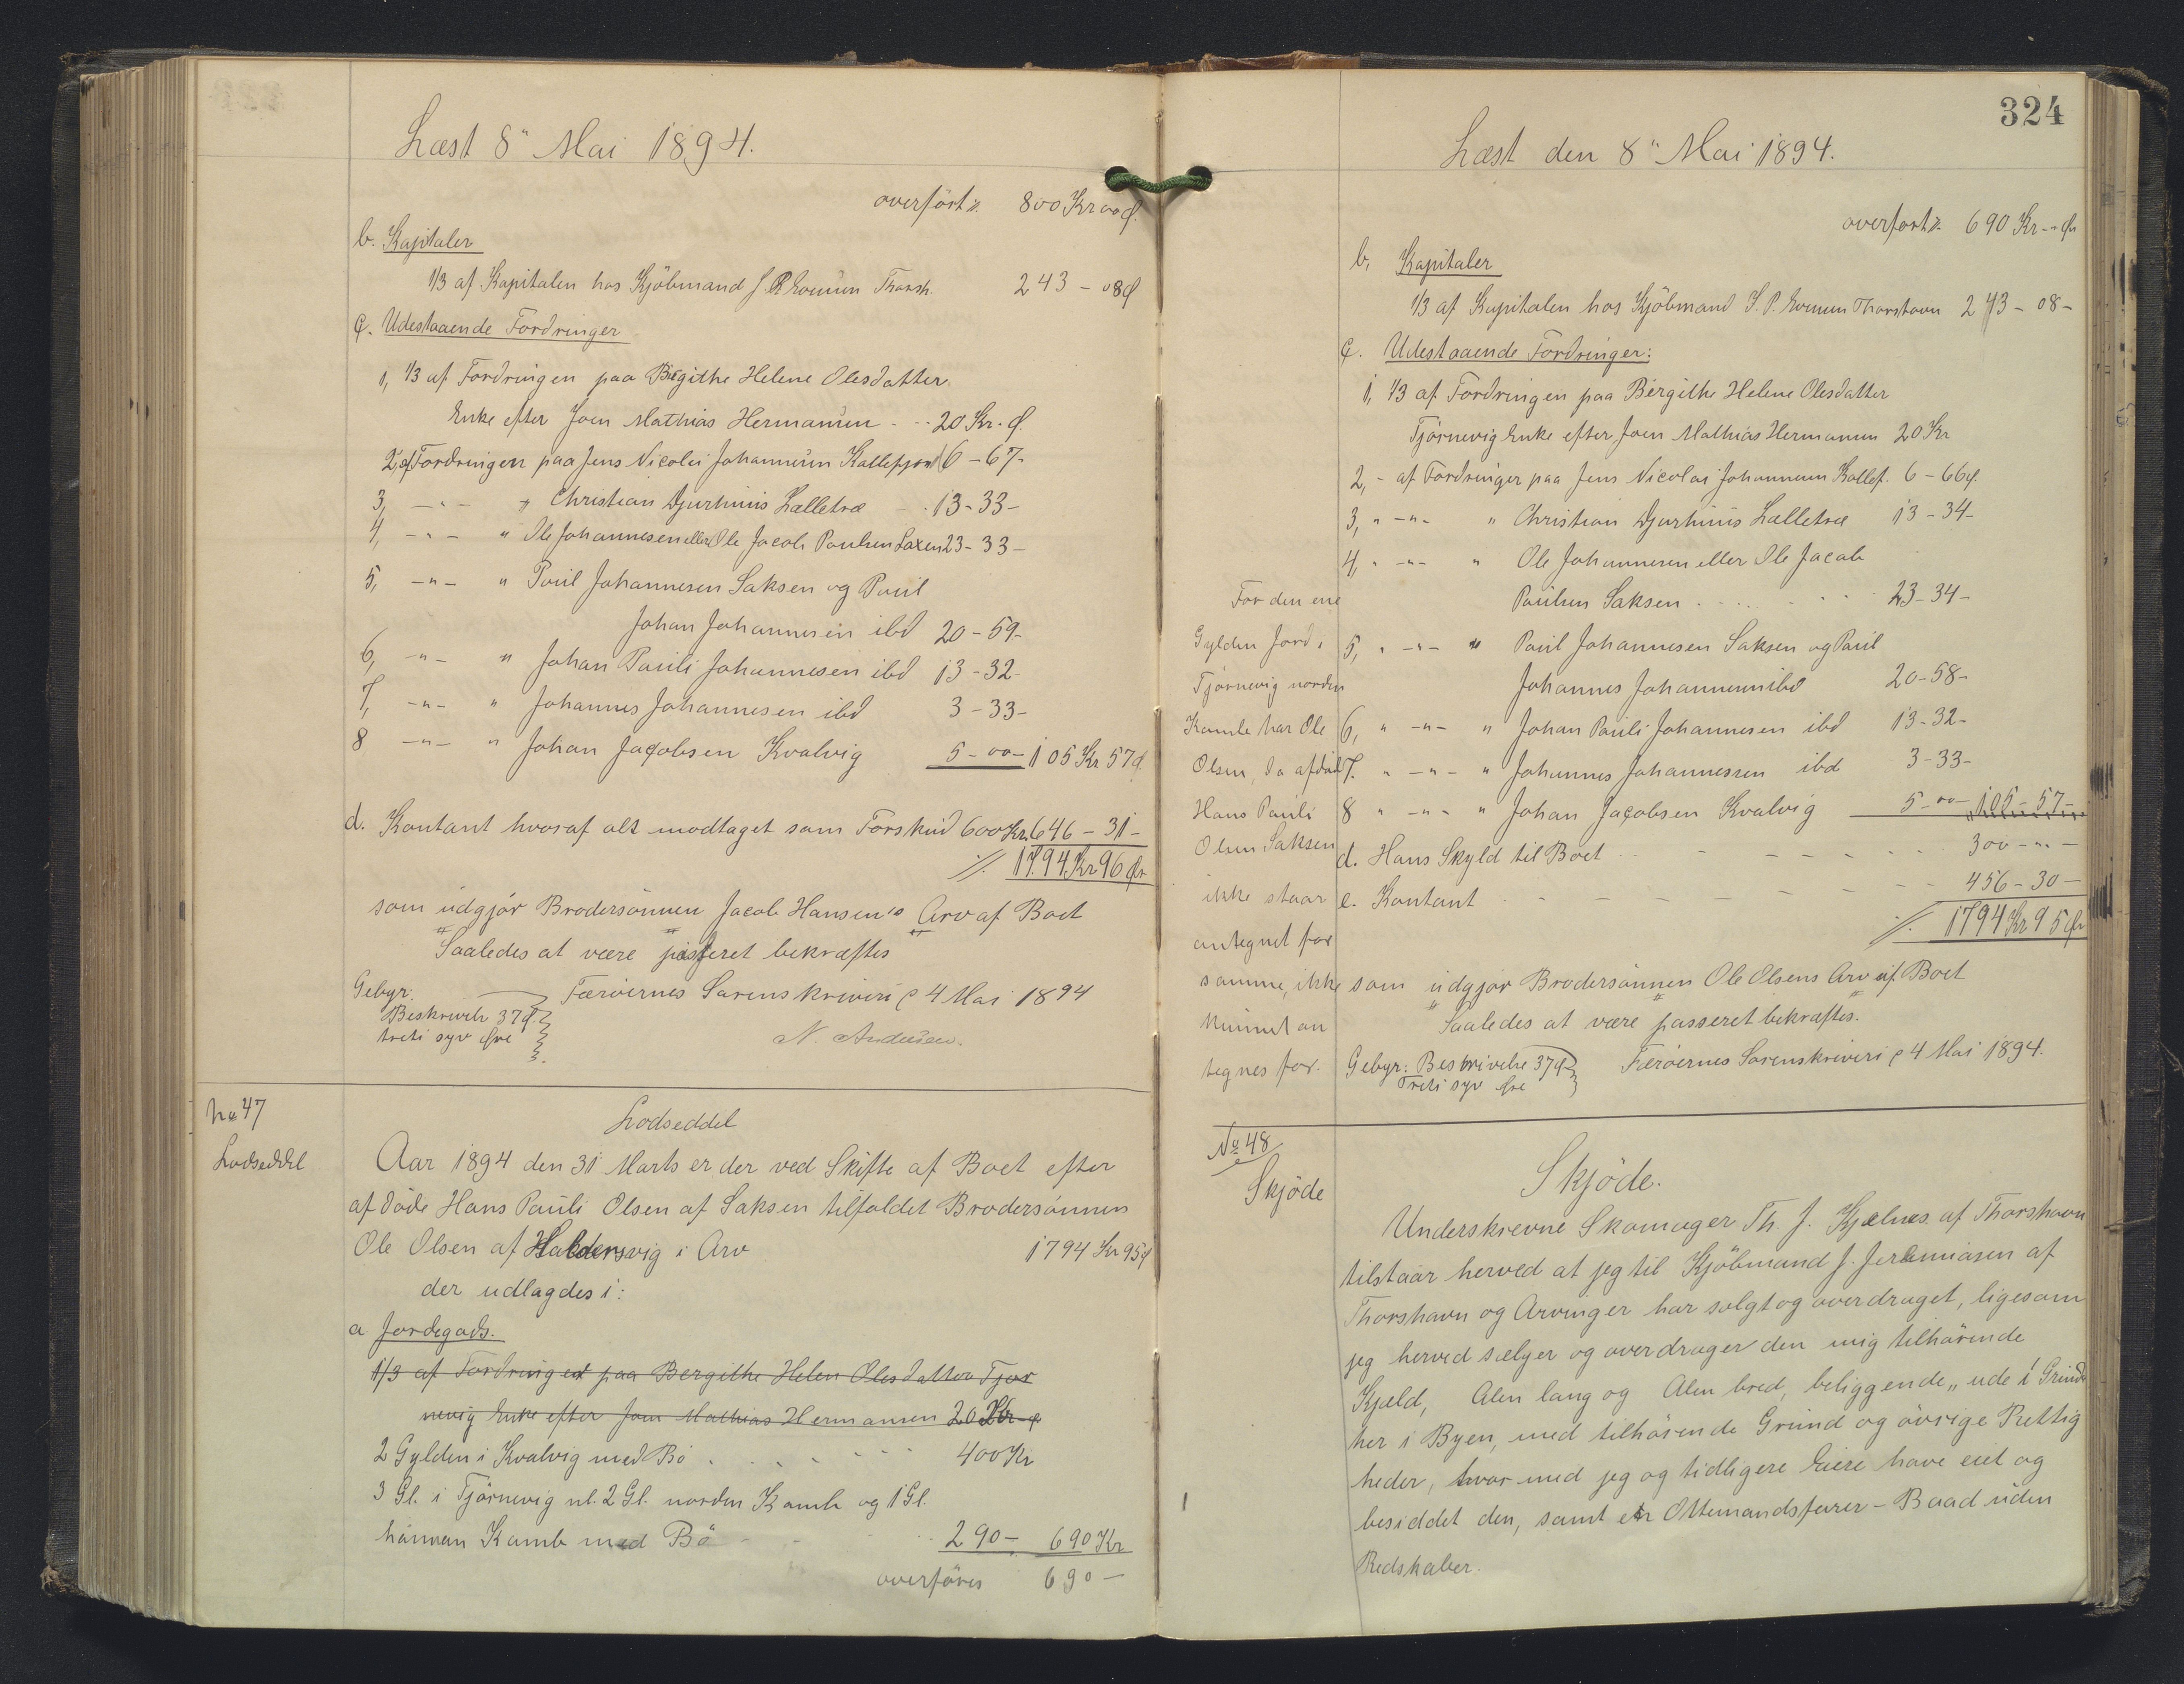 Læst 8" Mai 1894.
overført ·/. 800 Kr 00 Ø.
b. Kapitaler
1/3 af Kapitalen hos Kjöbmand J. P. Thorsh. 243 - 08 Ø
c. Udestaaende Fordringer
1, 1/3 af Fordringen paa Birgithe Helene Olesdatter
Enke efter Joen Mathias Hermansen - - 20 Kr. Ø.
2, af Fordringen paa Jens Nicolai Johannesen Kallefjord 6 - 67 -
3, - " - " Christian Djurhuus Lælletræ - . 13 - 33 -
4, - " - " Ole Johannesen eller Ole Jacob Poulsen Saxen 23 - 33 -
5, - " - " Poul Johannesen Saksen og Poul
Johan Johannesen ibd 20 - 59 -
6, - " - " Johan Pauli Johannesen ibd 13 - 32 -
7, - " - " Johannes Johannesen ibd 3 - 33 -
8 - " - " Johan Jacobsen Kvalvig 5 - 00 - 105 Kr 57 Ø.
d. Kontant hvoraf alt modtaget som Forskud 600 Kr. 646 - 31 -
·/. 1794 Kr 96 Ør
som udgjør Brodersønnen Jacob Hansen's Arv af Boet
Saaledes at være passeret bekræftes
Gebyr: Færøernes Sorenskriveri d 4 Mai 1894
Beskrivels 37 Ø.
treti syv Øre N. Andersen.
No 47 Lodseddel
Lodseddel Aar 1894 den 31 Marts er der ved Skifte af Boet efter
afdøde Hans Pauli Olsen af Saksen tilfaldet Brodersønnen
Ole Olsen af Haldersvig i Arv 1794 Kr 95 Ø
der udlagdes i:
a Jordegods.
1/3 af Fordringen paa Bergithe Helen Olesdatter Tjør
nevig Enke efter Joen Mathias Hermansen 20 Kr - Ø
2 Gylden i Kvalvig med Bø . . . - - - 400 Kr
3 Gl. i Tjørnevig nl. 2 Gl. norden Kamb og 1 Gl.
hännan Kamb med Bø - - - - 290 - 690 Kr
overføres 690 -
324
Læst den 8" Mai 1894.
overført ·/. 690 Kr - " Ør
b, Kapitaler
1/3 af Kapitalen hos Kjöbmand J. P. Thorshavn 243 - 08 -
c. Udestaaende Fordringer:
1, 1/3 af Fordringen paa Bergithe Helene Olesdatter
Tjørnevig Enke efter Joen Mathias Hermansen 20 Kr
2, - af Fordringer paa Jens Nicolai Johannesen Kallef. 6 - 66 Ø.
3, " - " - " Christian Djurhuus Lælletræ 13 - 34 -
4, " - " - " Ole Johannesen eller Ole Jacob
Poulsen Saksen . . . . . . 23 - 34 -
5, " - " - " Poul Johannesen Saksen og Poul
Johannes Johannesen ibd 20 - 58 -
6, " - " - " Johan Pauli Johannesen ibd 13 - 32 -
7. " - " - " Johannes Johannessen ibd 3 - 33 -
8 " - " - " Johan Jacobsen Kvalvig 5 - 00 - 105 - 57 -
d. Hans Skyld til Boet - - - - - - 300 - " -
e. Kontant - - - - - - - 456 - 30 -
·/. 1794 Kr 95 Ør
som udgjør Brodersønnen Ole Olsens Arv af Boet
Saaledes at være passeret bekræftes.
Gebyr: Beskrivelse 37 Ø Færøernes Sorenskriveri d 4 Mai 1894.
Treti syv Øre
For den ene
Gylden Jord i
Tjørnevig norden
Kamb har Ole
Olsen, da afdøde
Hans Pauli
Olsen Saksen
ikke staar
antegnet for
samme, ikke
kunnet an
tegnes for.
No 48
Skjøde
Skjøde.
Underskrevne Skomager Th. J. Kjelnes af Thorshavn
tilstaar herved at jeg til Kjöbmand J. Jeremiasen af
Thorshavn og Arvinger har solgt og overdraget, ligesom
jeg herved sælger og overdrager den mig tilhørende
Kjæld, Alen lang og Alen bred, beliggende „ude i Grind
her i Byen, med tilhørende Grund og øvrige Rettig
heder, hvormed jeg og tidligere Eiere have eiet og
besiddet den, samt en Ottemandsfarer-Baad uden
Redskaber.